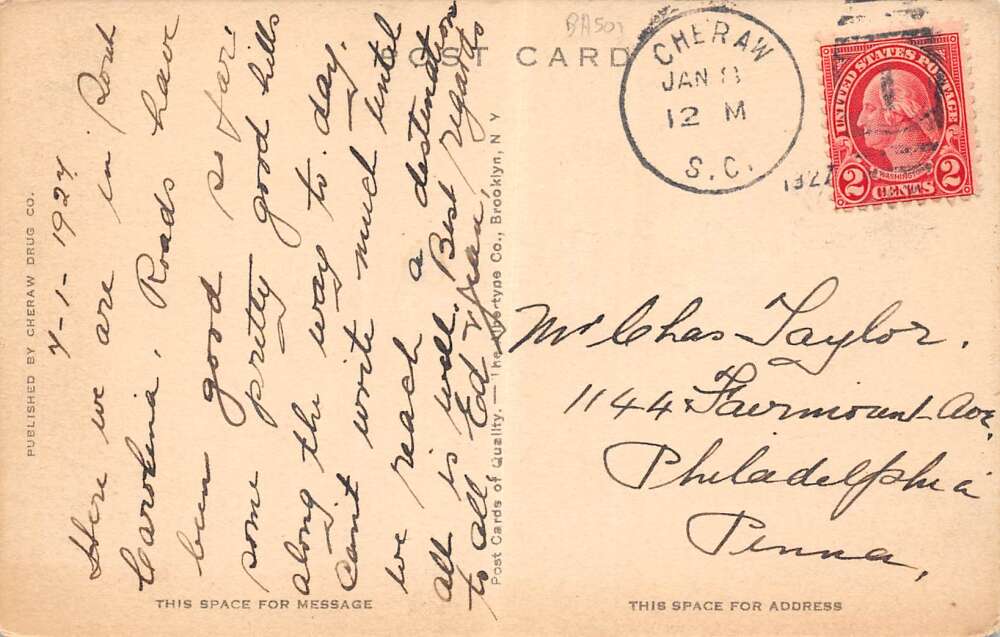 BA503
POST CARD
CHERAW
JAN 8
12 M
S.C.
1927
UNITED STATES POSTAGE
WASHINGTON
2 CENTS 2
PUBLISHED BY CHERAW DRUG CO.
4-1-1927
Here we are in South
Carolina. Roads have
been good so far.
some pretty good hills
along the way to-day.
Cant write much until
we reach a destination
all is well. Best regards
to all Ed
Post Cards of Quality. — The Albertype Co., Brooklyn, N Y
THIS SPACE FOR MESSAGE
Mr Chas Taylor.
1144 Fairmount Ave.
Philadelphia
Penna,
THIS SPACE FOR ADDRESS